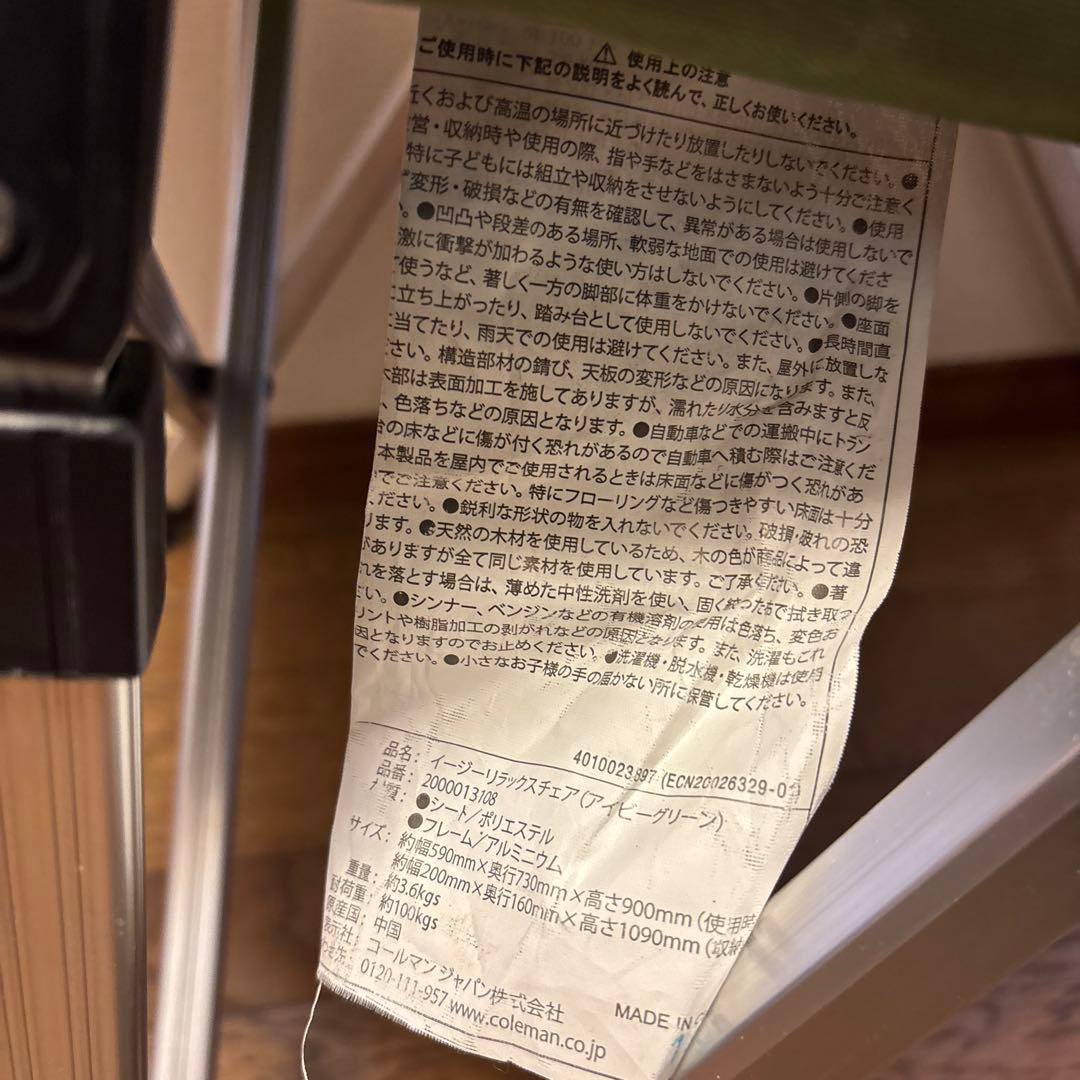 ⚠ 使用上の注意
ご使用時に下記の説明をよく読んで、正しくお使いください。
近くおよび高温の場所に近づけたり放置したりしないでください。●
営・収納時や使用の際、指や手などをはさまないよう十分ご注意く
特に子どもには組立や収納をさせないようにしてください。●使用
変形・破損などの有無を確認して、異常がある場合は使用しないで
。●凹凸や段差のある場所、軟弱な地面での使用は避けてくださ
激に衝撃が加わるような使い方はしないでください。●片側の脚を
使うなど、著しく一方の脚部に体重をかけないでください。●座面
立ち上がったり、踏み台として使用しないでください。●長時間直
当てたり、雨天での使用は避けてください。また、屋外に放置しな
さい。構造部材の錆び、天板の変形などの原因になります。また、
部は表面加工を施してありますが、濡れたり水分を含みますと反
、色落ちなどの原因となります。●自動車などでの運搬中にトラン
の床などに傷が付く恐れがあるので自動車へ積む際はご注意くだ
本製品を屋内でご使用されるときは床面などに傷がつく恐れがあ
でご注意ください。特にフローリングなど傷つきやすい床面は十分
ださい。●鋭利な形状の物を入れないでください。破損・破れの恐
ります。●天然の木材を使用しているため、木の色が商品によって違
がありますが全て同じ素材を使用しています。ご了承ください。●著
れを落とす場合は、薄めた中性洗剤を使い、固く絞ったで拭き取
い。●シンナー、ベンジンなどの有機溶剤の使用は色落ち、変色お
リントや樹脂加工の剥がれなどの原因となります。また、洗濯もこれ
因となりますのでお止めください。●洗濯機・脱水機・乾燥機は使用
でください。●小さなお子様の手の届かない所に保管してください。
4010023897 (ECN20026329-0
品名: イージーリラックスチェア(アイビーグリーン)
品番: 2000013108
材質: ●シート/ポリエステル
●フレーム/アルミニウム
サイズ: 約幅590mm×奥行730mm×高さ900mm (使用時
約幅200mm×奥行160mm×高さ1090mm (収納
重量: 約3.6kgs
耐荷重: 約100kgs
原産国: 中国
表示社: コールマン ジャパン株式会社
わせ先: 0120-111-957 www.coleman.co.jp
MADE IN